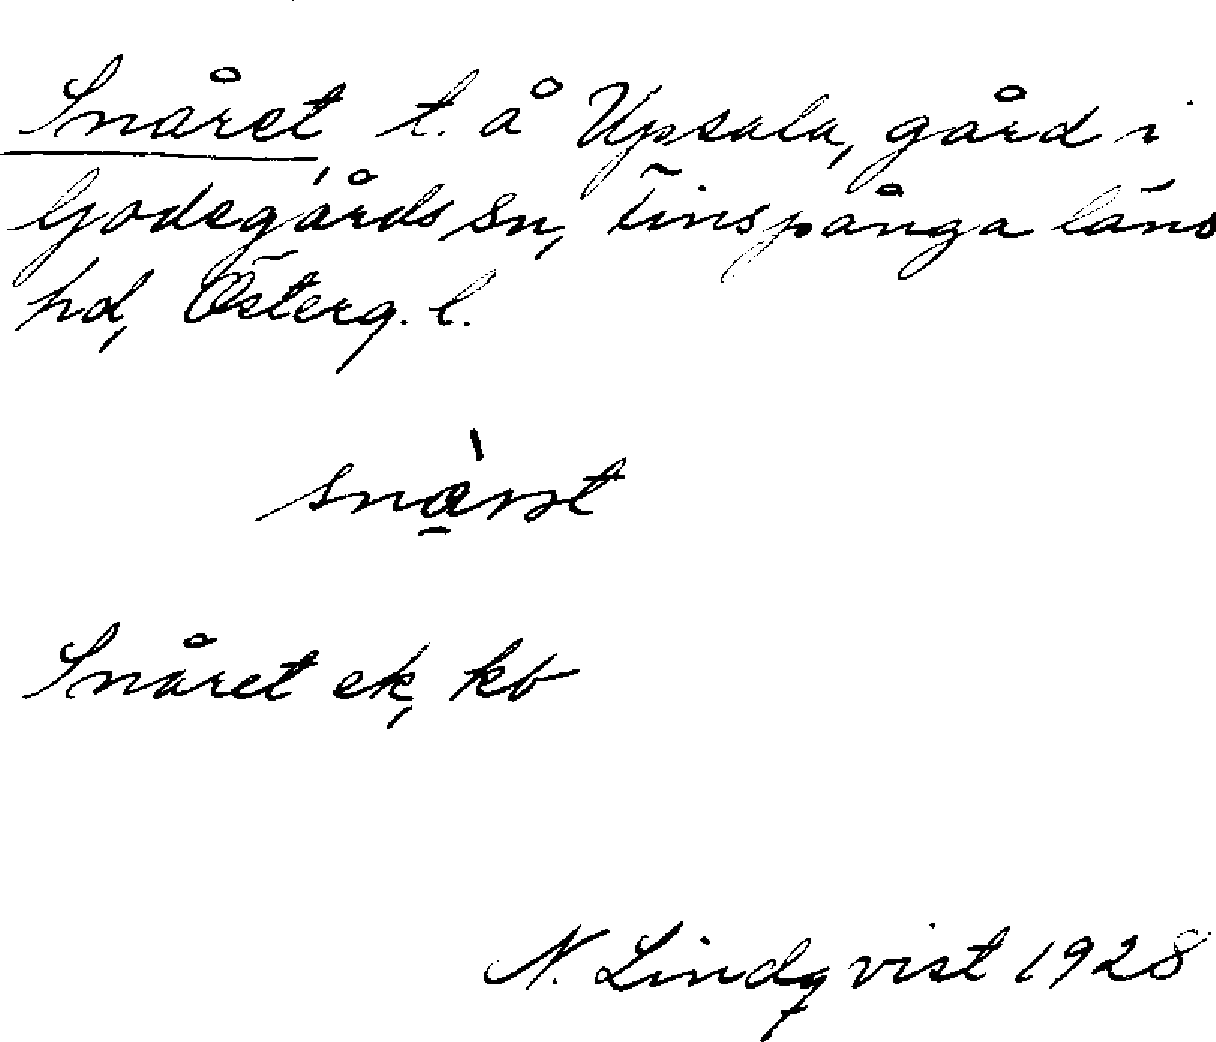 Snåret, t. å Upsala, gård i
Godegårds sn, Finspånga läns
hd, Österg. l.
Snåret ek, kb
N. Lindqvist 1928